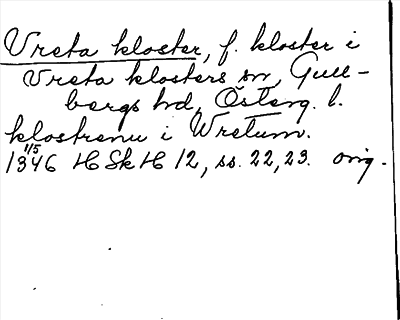 Vreta kloster, f. kloster i
Vreta klosters sn, Gull-
bergs hd, Österg. l.
klostrenu i Wretum.
1/5
1346 H Sk H 12, ss. 22, 23. orig.